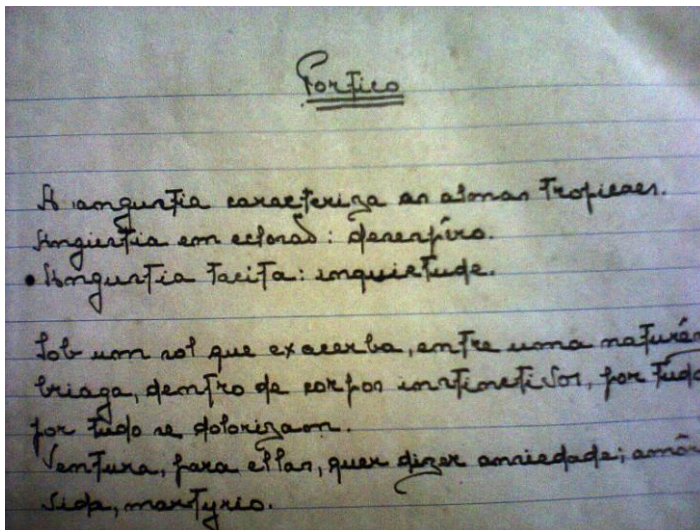 Portico
A angustia caracteriza as almas tropicaes.
Angustia em eclosão: desespêro.
• Angustia tacita: inquietude.
Sob um sol que exacerba, entre uma naturêz
briaga, dentro de corpos instinctivos, por tudo
por tudo se dolorizam.
Ventura, para ellas, quer dizer anciedade; amôr
vida, martyrio.